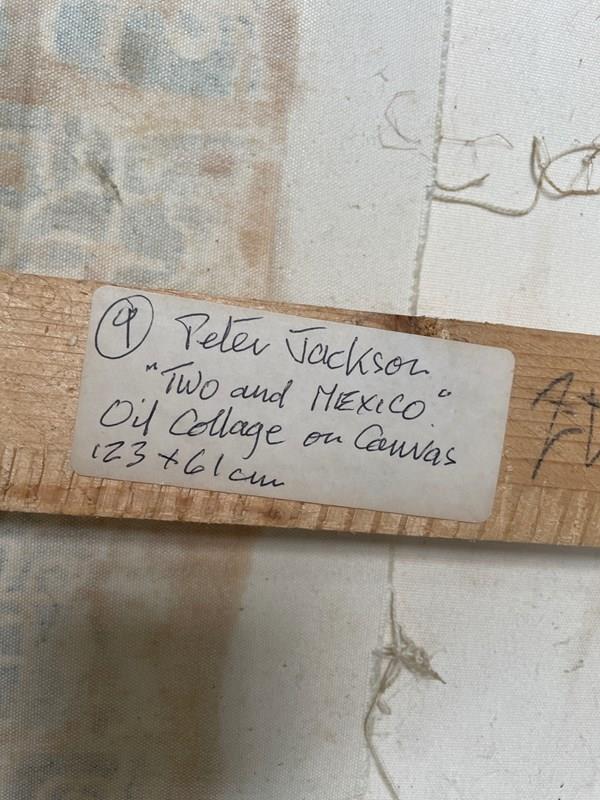 4 Peter Jackson
"TWO and MEXICO"
Oil Collage on Canvas
123 x 61 cm